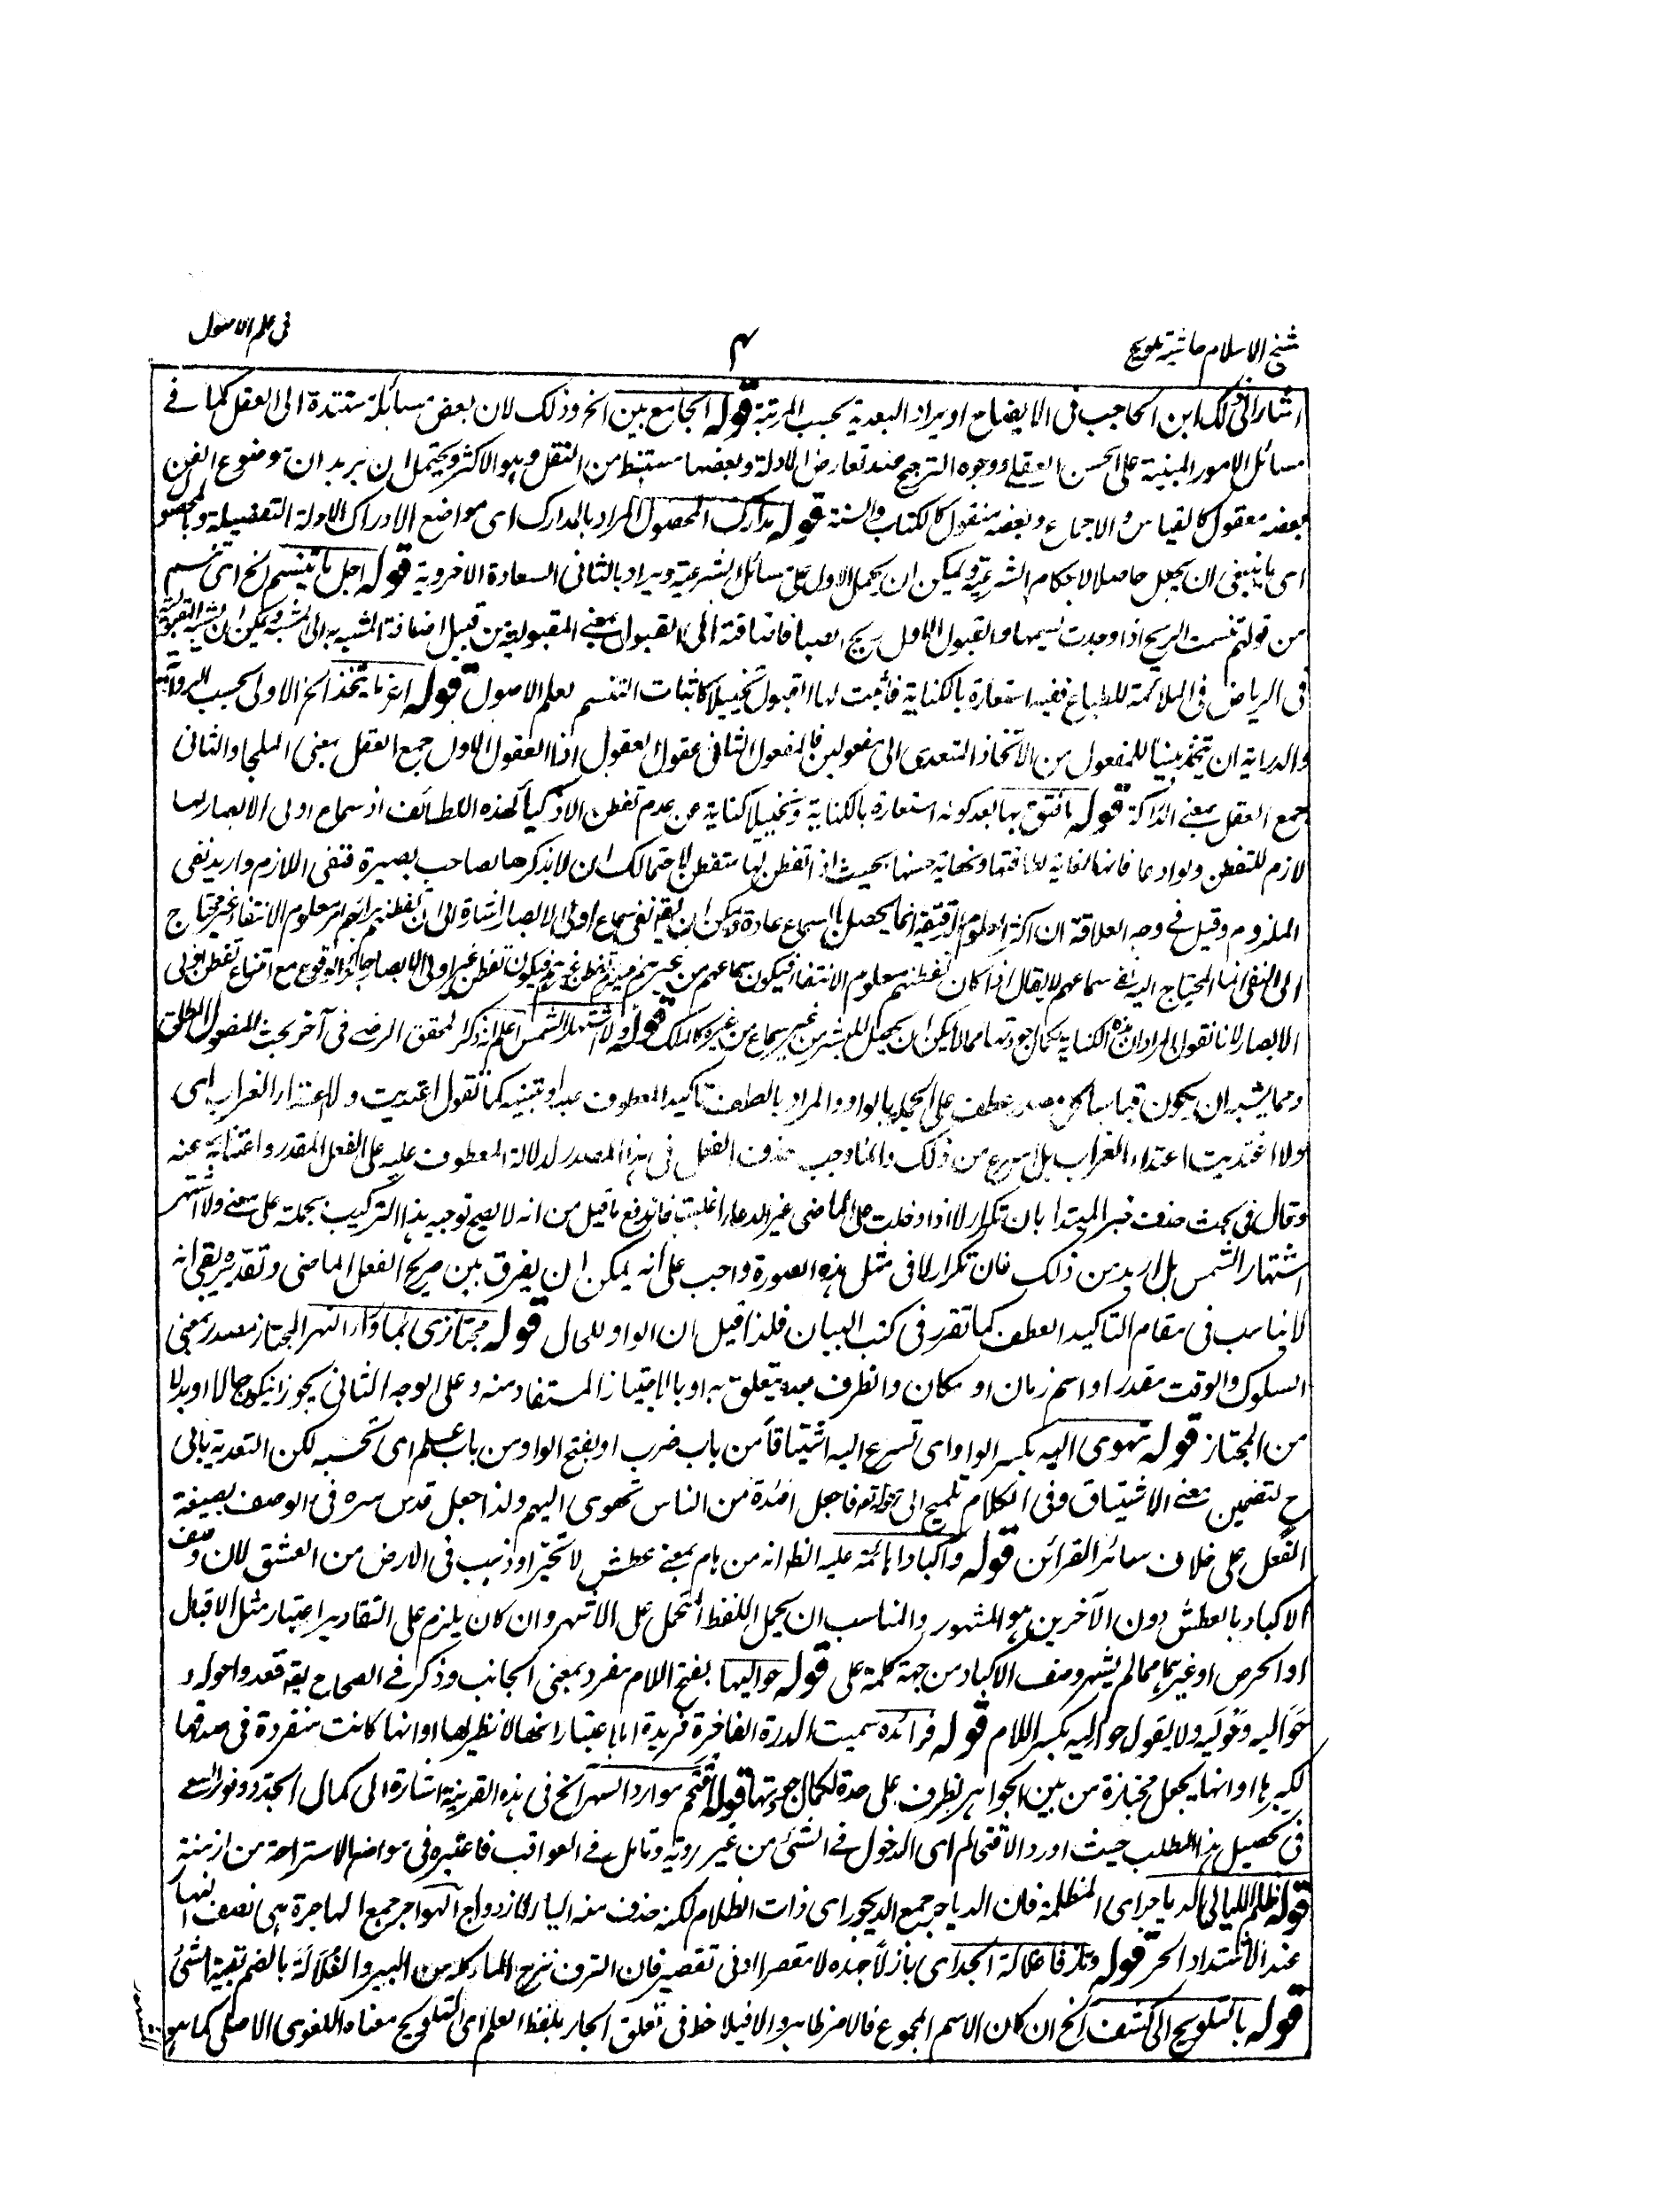 شيخ الاسلام حاشية تلويح
٤
فى علم الاصول
اشار الى ذلك ابن الحاجب فى الايضاح او يراد البعدية بحسب المرتبة قوله الجامع بين الخ وذلك لان بعض مسائله مستندة الى العقل كما فى
مسائل الامور المبنية على الحسن العقلى ووجوه الترجيح عند تعارض الادلة وبعضها مستنبط من النقل وهو الاكثر ويحتمل ان يريد ان موضوع الفن
بعضه معقول كالقياس والاجماع وبعضه منقول كالكتاب والسنة قوله مدارك المحصول المراد بالمدارك اى مواضع الادراك الادلة التفصيلة وبالمحصول
اى ما ينبغى ان يجعل حاصلا الاحكام الشرعية ويمكن ان يحمل الاول على مسائل الشرعية ويراد بالثانى السعادة الاخروية قوله اجل ما يتنسم الخ اى تنسم
من قولهم تنسمت الريح اذا وجدت نسيمها والقبول الاول ريح الصبا فاضافته الى القبول بمعنى المقبولية من قبيل اضافة المشبه به الى المشبه ويمكن ان
فى الرياض فى الملائمة للطباع ففيه استعارة بالكناية فاثبت لها القبول تخييلا كاثبات التنسم لعلم الاصول قوله اعز ما يتخذ الخ الاولى بحسب الرواية
والدراية ان يتخذ مبنيا للمفعول من الاتخاذ المتعدى الى مفعولين فالمفعول الثانى عقول العقول اذا العقول الاول جمع العقل بمعنى الملجا والثانى
جمع العقل بمعنى الدراكة قوله بها بعد كونه استعارة بالكناية وتخييلا كناية عن عدم تفطن الاذكيا لهذه اللطائف اذ سماع اولى الابصار لها
لازم للتفطن ولو ادعا فانها لغاية لطافتها ونهاية حسنها بحيث اذا تفطن لها متفطن لا يتمالك ان لا يذكرها لصاحب بصيرة فنفى اللازم واريد نفى
الملزوم وقيل فى وجه العلاقة ان اكثر العلوم الدقيقة انما يحصل بالسماع عادة ويمكن ان يقه نفى سماع اولى الابصار اشارة الى ان تفطنهم برائهم امر معلوم الانتفاء غير محتاج
الى النفى انما المحتاج اليه نفى سماعهم لا يقال اذا كان تفطنهم معلوم الانتفاء فيكون سماعهم من غيرهم فيكون تفطن غير اولى الابصار جائز الوقوع مع امتناع تفطن اولى
الابصار لانا نقول المراد ان هذه الكناية لكمال جودتها مما لا يمكن ان يحصل للبشر من غير سماع من غيره كالملك قوله ولا اشتهار الشمس اعلم انه ذكر المحقق الرضى فى آخر بحث المفعول المطلق
ومما يشبه ان يكون قياسا كل مصدر عطف على الجملة بالواو والمراد بالعطف تاكيد المعطوف عليه كما تقول اغتديت ولا اغتداء الغراب اى
ولا اغتديت اغتداء الغراب بل اسرع من ذلك وانما وجب حذف الفعل فى هذا المصدر لدلالة المعطوف عليه على الفعل المقدر واغنائه عنه
وقال فى بحث حذف خبر المبتدا بان تكرار لا اذا دخلت على الماضى غير الدعاء اغلب فاندفع ما قيل من انه لا يصح توجيه هذا التركيب بجملة على معنى ولا اشتهر
اشتهار الشمس بل ازيد من ذلك فان تكرار لا فى مثل هذه الصورة واجب على انه يمكن ان يفرق بين صريح الفعل الماضى وتقديره بقى انه
لا يناسب فى مقام التاكيد العطف كما تقرر فى كتب البيان فلذا قيل ان الواو للحال قوله مجتازى النهر المجتاز مصدر بمعنى
السلوك والوقت مقدر او اسم زمان او مكان والظرف بعده يتعلق به او بالاجتياز المستفاد منه وعلى الوجه الثانى يجوز ان يكون حالا او بدلا
من المجتاز قوله تهوى اليه بكسر الواو اى تسرع اليه اشتياقا من باب ضرب او بفتح الواو من باب علم اى تحبه لكن التعدية بالى
ح لتضمين معنى الاشتياق وفى الكلام تلميح الى قوله تع فاجعل افئدة من الناس تهوى اليهم ولذا جعل قدس سره فى الوصف بصيغة
الفعل على خلاف سائر القرائن قوله واكبادا هائمة عليه الظ انه من هام بمعنى عطش لا تحير او ذهب فى الارض من العشق لان وصف
الاكباد بالعطش دون الآخرين هو المشهور والمناسب ان يحمل اللفظ المحتمل على الاشهر وان كان يلزم على التقادير اعتبار مثل الاقبال
او الحرص او غيرهما مما لم يشهر وصف الاكباد من جهة كلمة على قوله حواليها بفتح اللام مفرد بمعنى الجانب وذكر فى الصحاح يقه قعدوا حوله و
حَوَاليه وحَوْلَيه ولا يقول حواليه بكسر اللام قوله فرائده سميت الدرة الفاخرة فريدة اما باعتبار انها لا نظير لها او انها كانت منفردة فى صدفها
لكبرها او انها يجعل مختارة من بين الجواهر بظرف على حدة لكمال جودتها قوله اقتحم موارد السهر الخ فى هذه القرينة اشارة الى كمال الجد ووفور السعى
فى تحصيل هذا المطلب حيث اورد الاقتحام اى الدخول فى الشئ من غير روية وتامل فى العواقب فاعتبره فى مواضع الاستراحة من ازمنة
قوله ظلم الليالى الدياجر اى المظلمة فان الدياجر جمع الديجور اى ذات الظلام لكنه حذف منه الياء للازدواج الهواجر جمع الهاجرة هى نصف النهار
عند اشتداد الحر قوله ونزفا علالة الجد اى باذلا جده لا مقصرا ادنى تقصير فان النزف نزح الماء كله من البير والعُلالة بالضم بقية الشئ
قوله بالتلويح الى كشف الخ ان كان الاسم المجموع فالامر ظاهر والا فيلاحظ فى تعلق الجار بلفظ العلم اى التلويح معناه اللغوى الاصلى كما هو